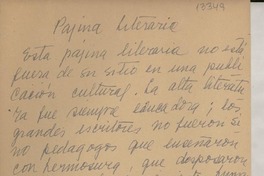 13349
Pagina Literaria
Esta pajina literaria no está
fuera de su sitio en una publi
cación cultural. La alta literatu
ra fue siempre educadora; los
grandes escritores no fueron si
no pedagogos que enseñaron
con hermosura, que desposaron